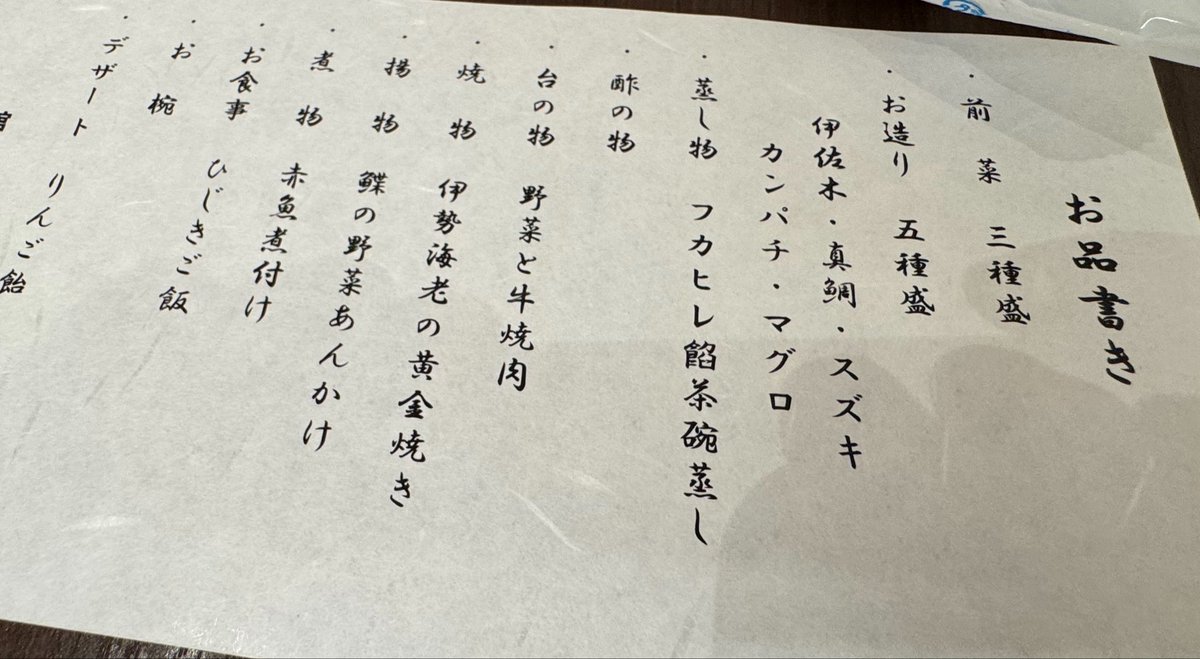 お品書き
・前菜 三種盛
・お造り 五種盛
伊佐木・真鯛・スズキ
カンパチ・マグロ
・蒸し物 フカヒレ餡茶碗蒸し
・酢の物
・台の物 野菜と牛焼肉
・焼物 伊勢海老の黄金焼き
・揚物 鰈の野菜あんかけ
・煮物 赤魚煮付け
・お食事 ひじきご飯
・お椀
・デザート りんご飴